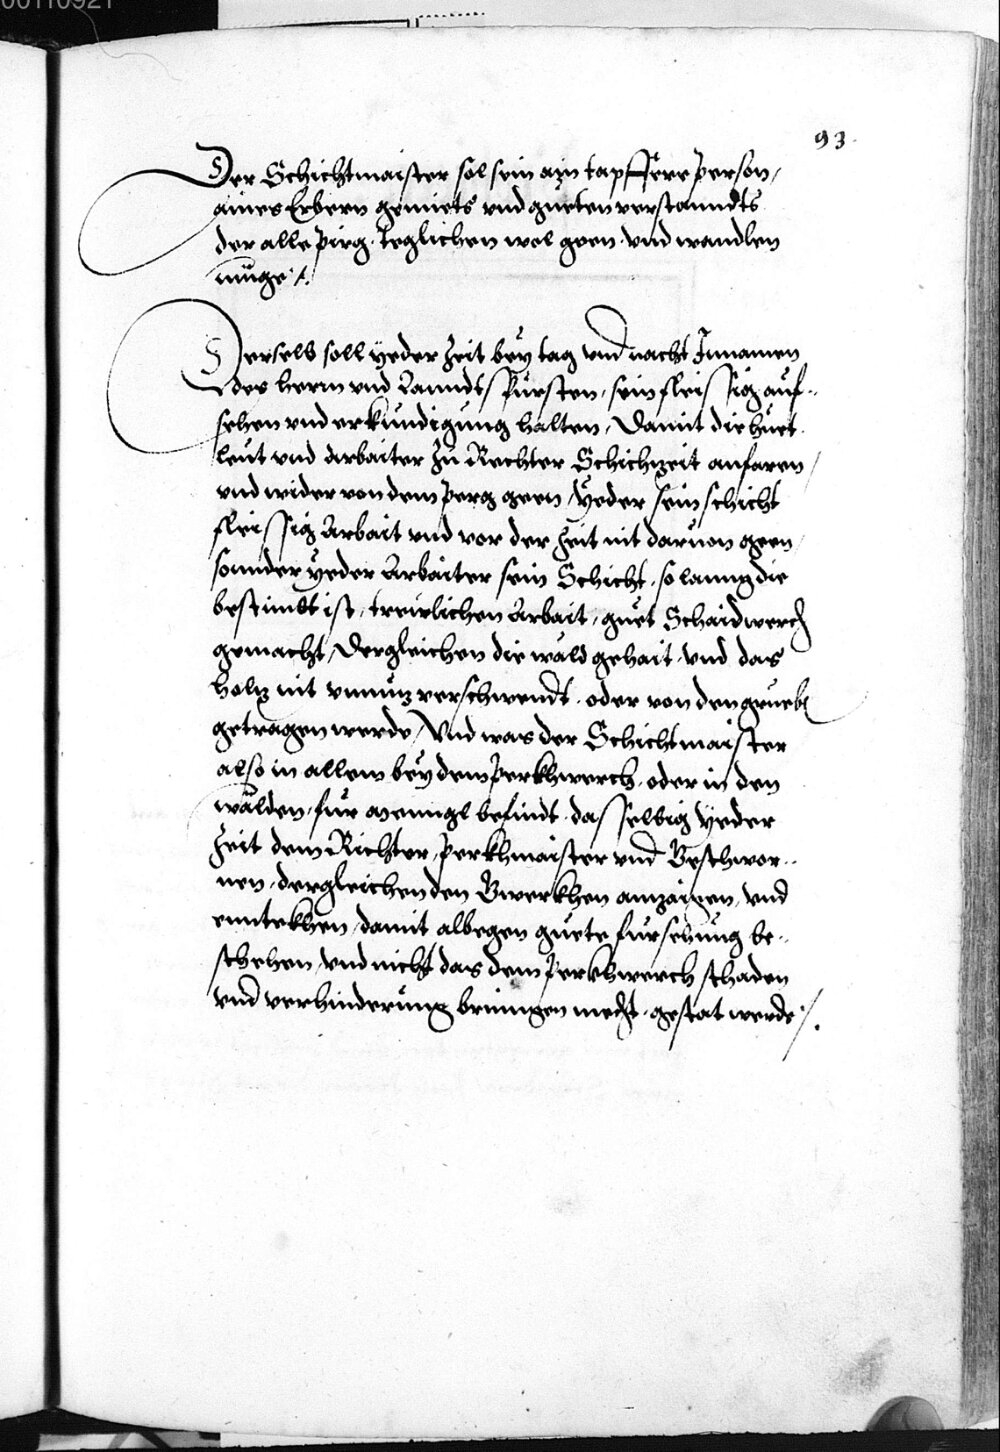 00110921
93.
Der Schichtmaister sol sein ain tapffere person /
aines Erbern gemiets vnd gueten verstanndts
der alle pirg. teglichen wol geen. vnd wandlen
müge /.
Derselb soll yeder Zeit bey tag vnd nacht Innamen
des herrn vnd Lanndts Fürsten, sein fleissig auf=
sehen vnd erkundigung halten, Damit die huet
leut vnd Arbaiter zu Rechter Schichtzeit anfaren /
vnd wider von dem perg geen / Yeder sein schicht
fleissig Arbait vnd vor der Zeit nit daruon geen /
sonnder yeder Arbaiter sein Schicht. so lanng die
bestimbt ist, treulichen Arbait, guet Schaidwerch
gemacht, Dergleichen die wäld gehait. vnd das
holtz nit vnnutz verschwendt. oder von den grueben
getragen werde / Vnd was der Schichtmaister
also in allem bey dem perkhwerch. oder in den
wälden. für menngl befindt. dasselbig yeder
Zeit dem Richter, perkhmaister vnd Beschwor=
nen. dergleichen den Gwerkhen anzaigen. vnd
enntekhen, damit albegen guete fürsehung be=
schehen, vnd nicht das dem perkhwerch schaden
vnd verhinderung bringen mecht. gestat werde /.